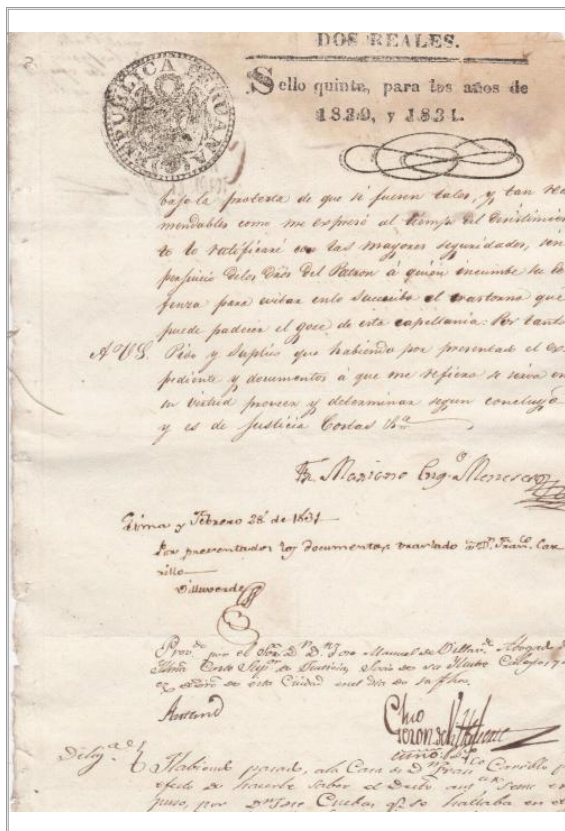 DOS REALES.
REPUBLICA PERUANA
Sello quinto, para los años de
1830, y 1831.
bajo la protesta de que si fueren tales, y tan reco
mendables como me expresé al tiempo del desistimien
to lo ratificaré con las mayores seguridades, sin
perjuicio delos Dros del Patron á quien incumbe su de
fenza para evitar enlo sucesibo el trastorno que
puede padecer el goce de esta capellania: Por tanto
A V.S. Pido y Suplico que habiendo por presentado el ex
pediente y documentos á que me refiero se sirva en
su virtud proveer y determinar segun concluyo
y es de Justicia Costas &a
Fr. Mariano Meneses
Lima y Febrero 28 de 1831
Por presentados los documentos traslado á Dn. Franco. Car
rillo
Villaverde
por el Sor. D. Dn. Jose Manuel de Abogado
Corte de Justicia, de su Ilustre Colegio, y
de esta Ciudad enel dia de su fha.
Diliga.
Habiendo pasado, ala Casa de Dn. Franco. Carrillo
efecto de hacerle saber el Decto
puso, por Dn. Jose Cuebas qe. se hallaba en el